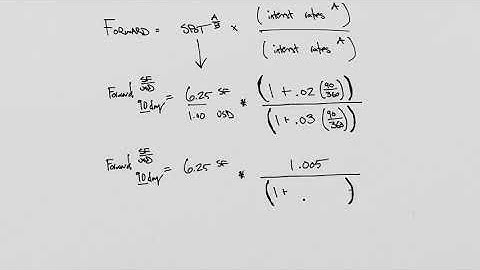 FORWARD = SPOT A/B × (interest rates A) / (interest rates A)
Forward SF/USD 90 day = 6.25 SF / 1.00 USD * (1 + .02 (90/360)) / (1 + .03 (90/360))
Forward SF/USD 90 day = 6.25 SF * 1.005 / (1 + . )